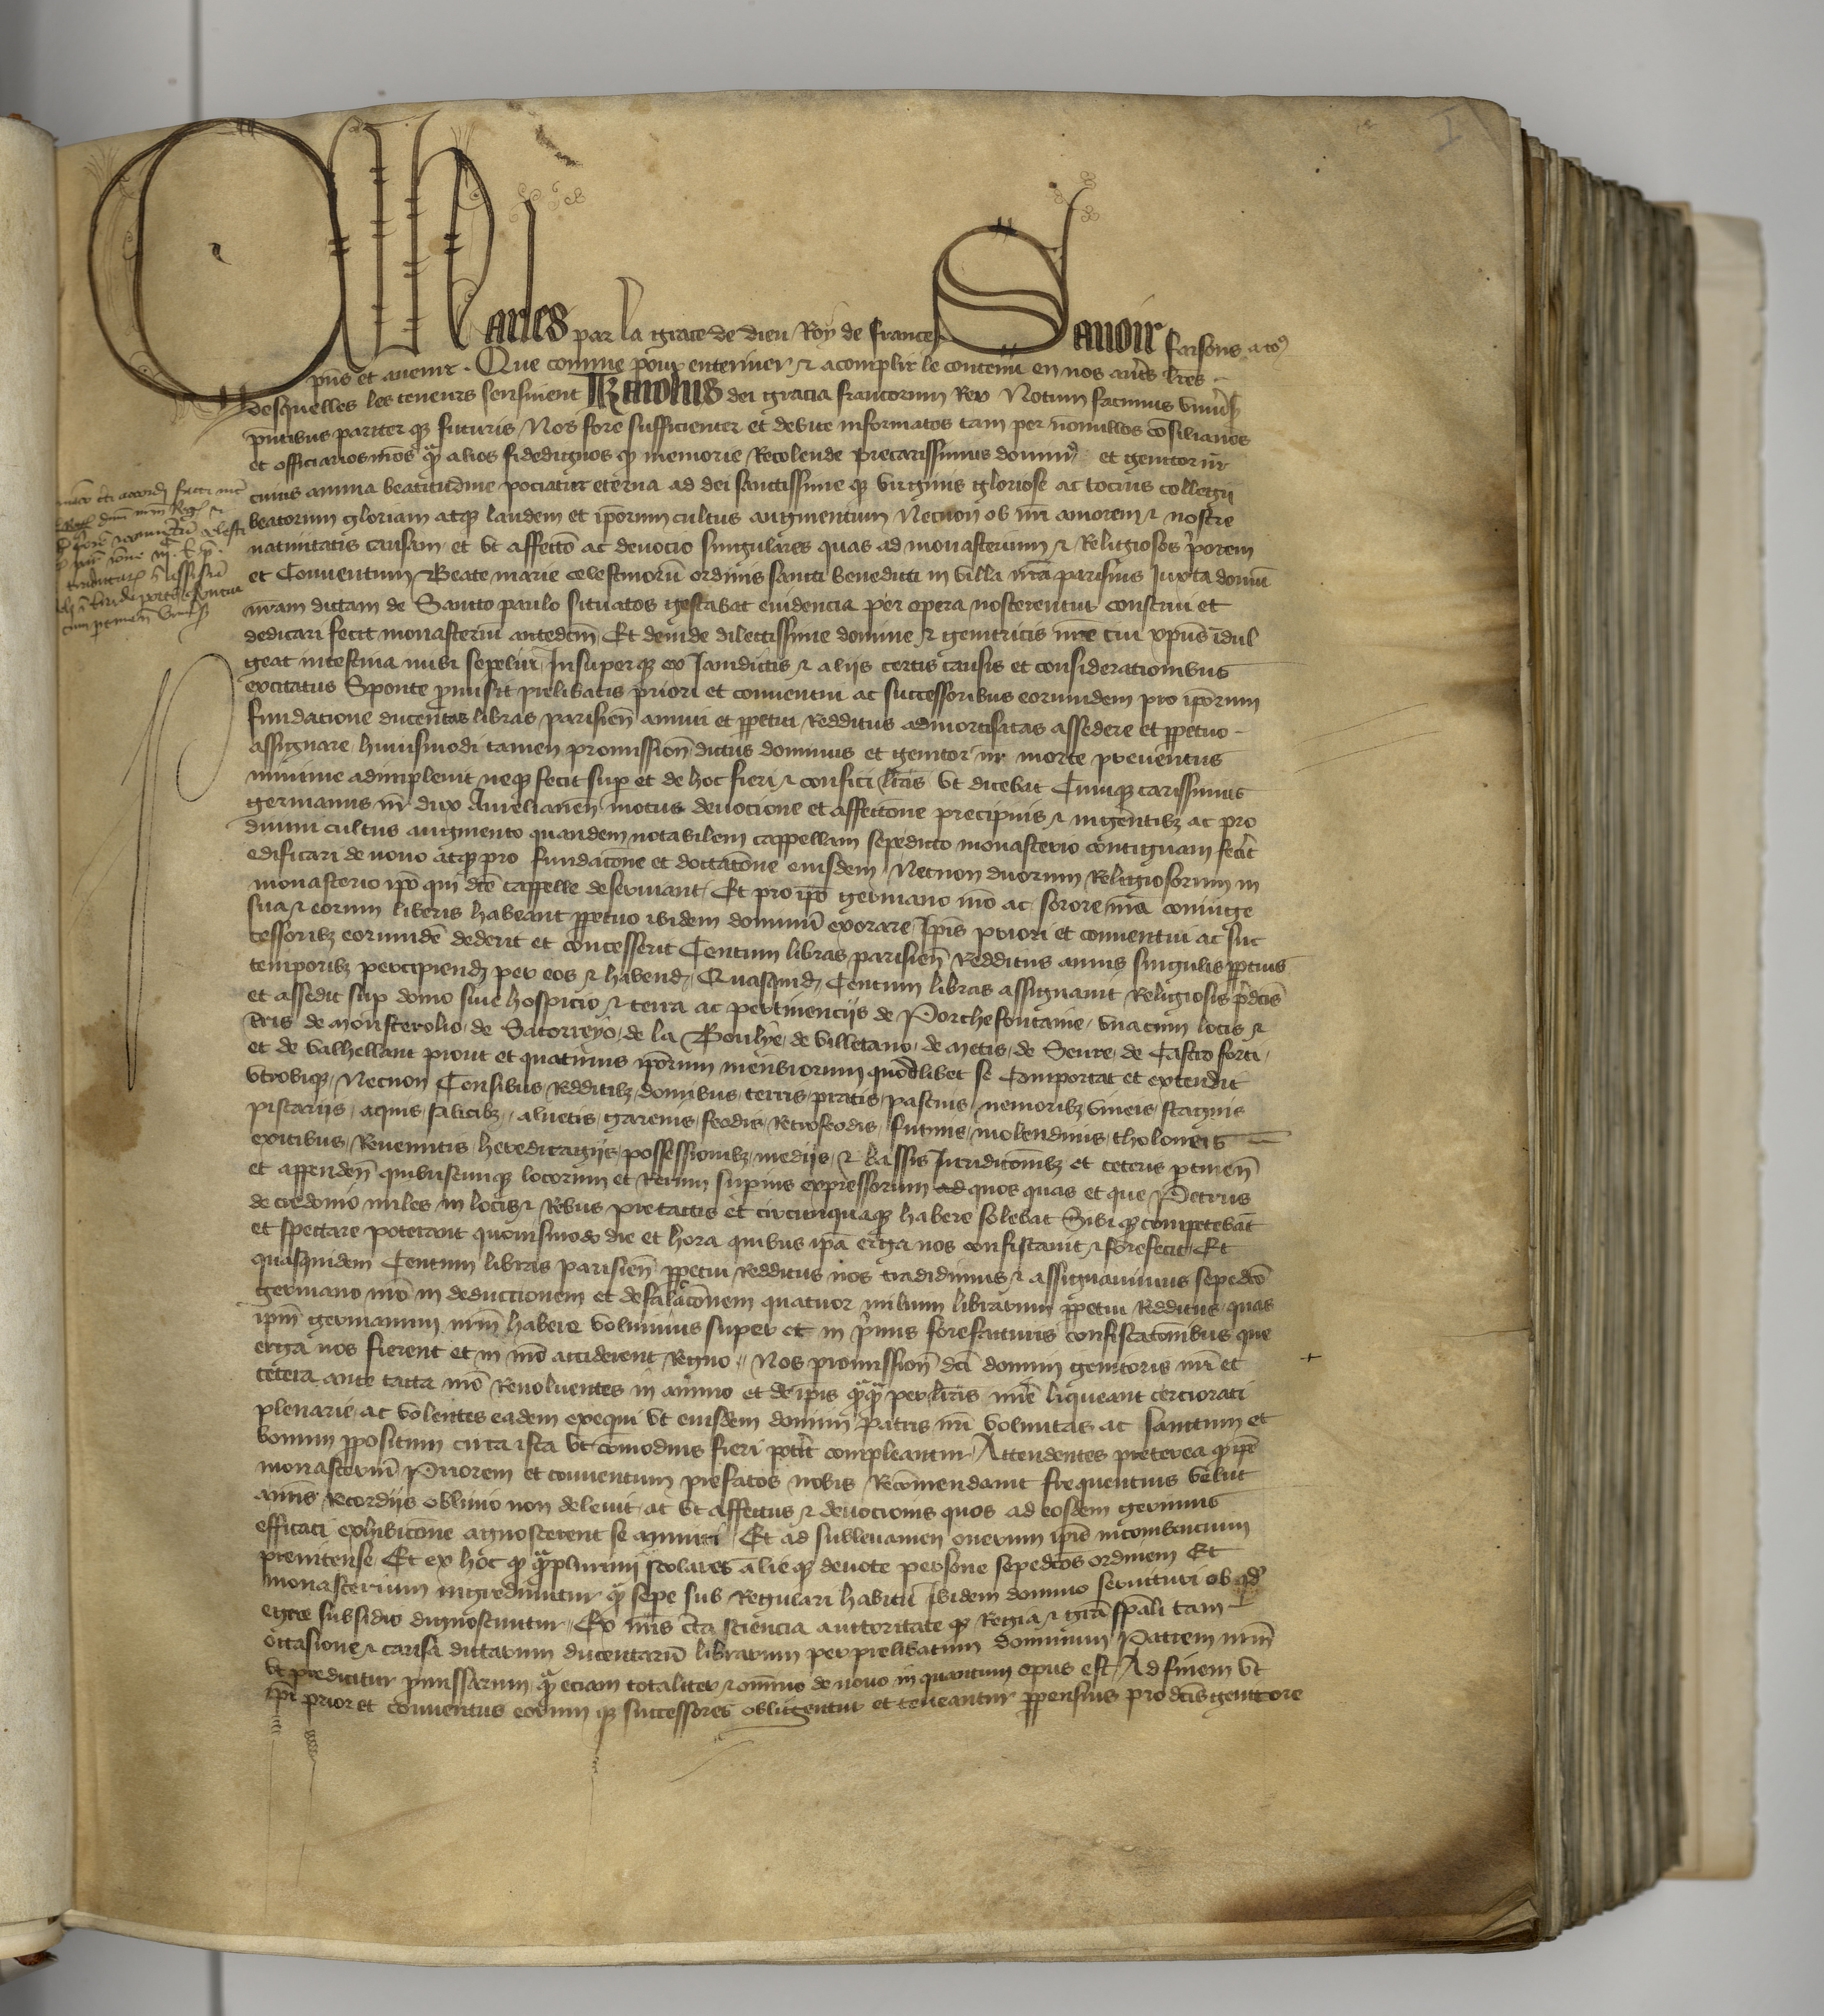 I
Charles par la grace de dieu Roy de france Sauoir faisons a to9
pn̄s et auenir. Que comme pour enteriner ⁊ acomplir le contenu en nos au͛s lr̄es
desquelles les teneurs sensuient Karolus dei gracia francorum Rex Notum facimus vniu͛s
pn̄tibus pariter qꝫ futuris, Nos fore sufficienter et debite informatos tam per nōnullos cōsiliarios
et officiarios nr̄os qͣ alios fidedignos qꝫ memorie Recolende precarissimus domin9 et genitor nr̄
cuius anima beatitudine pociatur eterna ad dei sanctissime qꝫ virginis gloriose ac tocius collegij
beatorum gloriam atqꝫ laudem et ip̄orum cultus augmentum Necnon ob nr̄i amorem ⁊ nostre
natiuitatis causam et vt affectō ac deuocio singulares quas ad monasterium ⁊ Religiosos p̄orem
et Conuentum Beate marie celestinorū ordinis sancti benedicti in villa nr̄a parisius Iuxta domū
nr̄am dictam de Sancto paulo situatos gestabat euidencia per opera noscerentur construi et
dedicari fecit monasteriū antedcm̄, Et deinde dilectissime domine ⁊ genitricis nr̄e cui xp̄us īdul
geat intestina inibi sepeliri, Insuper qꝫ ex Iamdictis ⁊ alijs certis causis et considerationibus
excitatus Sponte ꝓmisit prelibatis priori et conuentui ac successoribus eorumdem pro ip̄orum
fundatione ducentas libras parisien̄ annui et ꝑpetui, Redditus admortisatas assedere et ꝑpetuo
assignare, huiusmodi tamen promission̄ dictus dominus et genitor nr̄ morte preuentus
minime adimpleuit neqꝫ fecit sup̱ et de hoc fieri ⁊ confici lr̄as vt dicebat Cumqꝫ carissimus
germanus nr̄ dux Aurelianen̄ motus deuocione et affectione precipuis ⁊ ingentibꝫ ac pro
diuini cultus augmento quandem notabilem cappellam sepedicto monasterio contiguam fec͛it
edificari de nouo atqꝫ pro fundacōne et dotatōne eiusdem Necnon duorum Religiosorum in
monasterio ip̄o qui dc̄e cappelle deseruiant, Et pro ip̄o germano nr̄o ac sorore nr̄a coniuge
sua ⁊ eorum liberis habeant ꝑpetuo ibidem dominū exorare, Ip̄is priori et conuentui ac suc
cessoribꝫ eorumdē dederit et concesserit Centum libras parisien̄ Redditus annis singulis ꝑpetuis
temporibꝫ percipiend per eos ⁊ habend, Quasquid Centum libras assignauit Religiosis p͛dcis
et assedit sup̱ domo siue hospicio ⁊ terra ac pertinencijs de Porchefontaine, vnacum locis ⁊
t͛ris de monsterolio, de Satorreyo, de la Boulye, de villetano, de metis, de Seure, de Castro forti,
et de valhellant prout et quatinus ip̄orum membrorum quodlibet se Comportat et extendit
vtrobiqꝫ, Necnon Censibus, Redditibꝫ, domibus, terris, pratis, pascuis, nemoribꝫ, vineis, stagnis
piscarijs, aquis, salicibꝫ, aluetis, garenis, feodis, Retrofeodis, furnis, molendinis, tholoneis
exitibus, Reuenutis, hereditagijs, possessionibꝫ, medijs, ⁊ bassis Iuridicōnibꝫ et ceteris ꝑtinen̄
et appenden̄ quibuscumqꝫ locorum et Rerum superius expressorum ad quos quas et que Petrus
de credonio miles in locis ⁊ Rebus pretactis et circumquaqꝫ habere solebat Sibi qꝫ competebāt
et spectare poterant quouismodo die et hora quibus ip̄a erga nos confiscauit ⁊ forefecit Et
quasquidem Centum libras parisien̄ ꝑpetui Redditus nos tradidimus ⁊ assignauimus sepedc̄o
germano nr̄o in deductionem et defalcacōnem quatuor milium librarum ꝑpetui Redditus, quas
ip̄m germanum nr̄m habere volumus super et in p͛mis forefacturis confiscacōnibus que
erga nos fierent et in nr̄o acciderent Regno, Nos promission̄ dc̄i domini genitoris nr̄i et
cetera ante tacta nr̄o Reuoluentes in animo et de ip̄is qͣqͣ per lr̄as mīe liqueant cerciorati
plenarie ac volentes eadem exequi vt eiusdem domini patris nr̄i voluntas ac sanctum et
bonum ꝓpositum circa ista vt cōmodius fieri pot͛it compleantur, Attendentes preterea qꝫ ip̄e
monasteriū Priorem et conuentum prefatos nobis Recōmendauit frequentius velut
a nr̄is Recordijs obliuio non deleuit, ac vt affectus ⁊ deuocionis quos ad eosdem gerimus
efficaci exhibicōne agnoscerent se amiri, Et ad subleuamen onerum ip̄is incombencium
premitense, Et ex hoc qꝫ qͣmplurimi scolares alie qꝫ deuote persone sepedcōs ordinem Et
monasterium ingrediuntur qͣ sepe sub Regulari habitū Ibidem domino seruituri ob qd
egere subsidio dignoscuntur, Ex nr̄is c͛ta sciencia auctoritate qꝫ Regia ⁊ gr̄a sp̄ali tam
occasione ⁊ causa dictarum ducentarū librarum per prelibatum dominum Patrem nr̄m
vt predicitur ꝓmissarum qͣ eciam totaliter ⁊ omnino de nouo in quantum opus est, Ad finem vt
ip̄i prior et conuentus eorum qꝫ successores obligentur et teneantur ꝓpensius pro dc̄is genitore